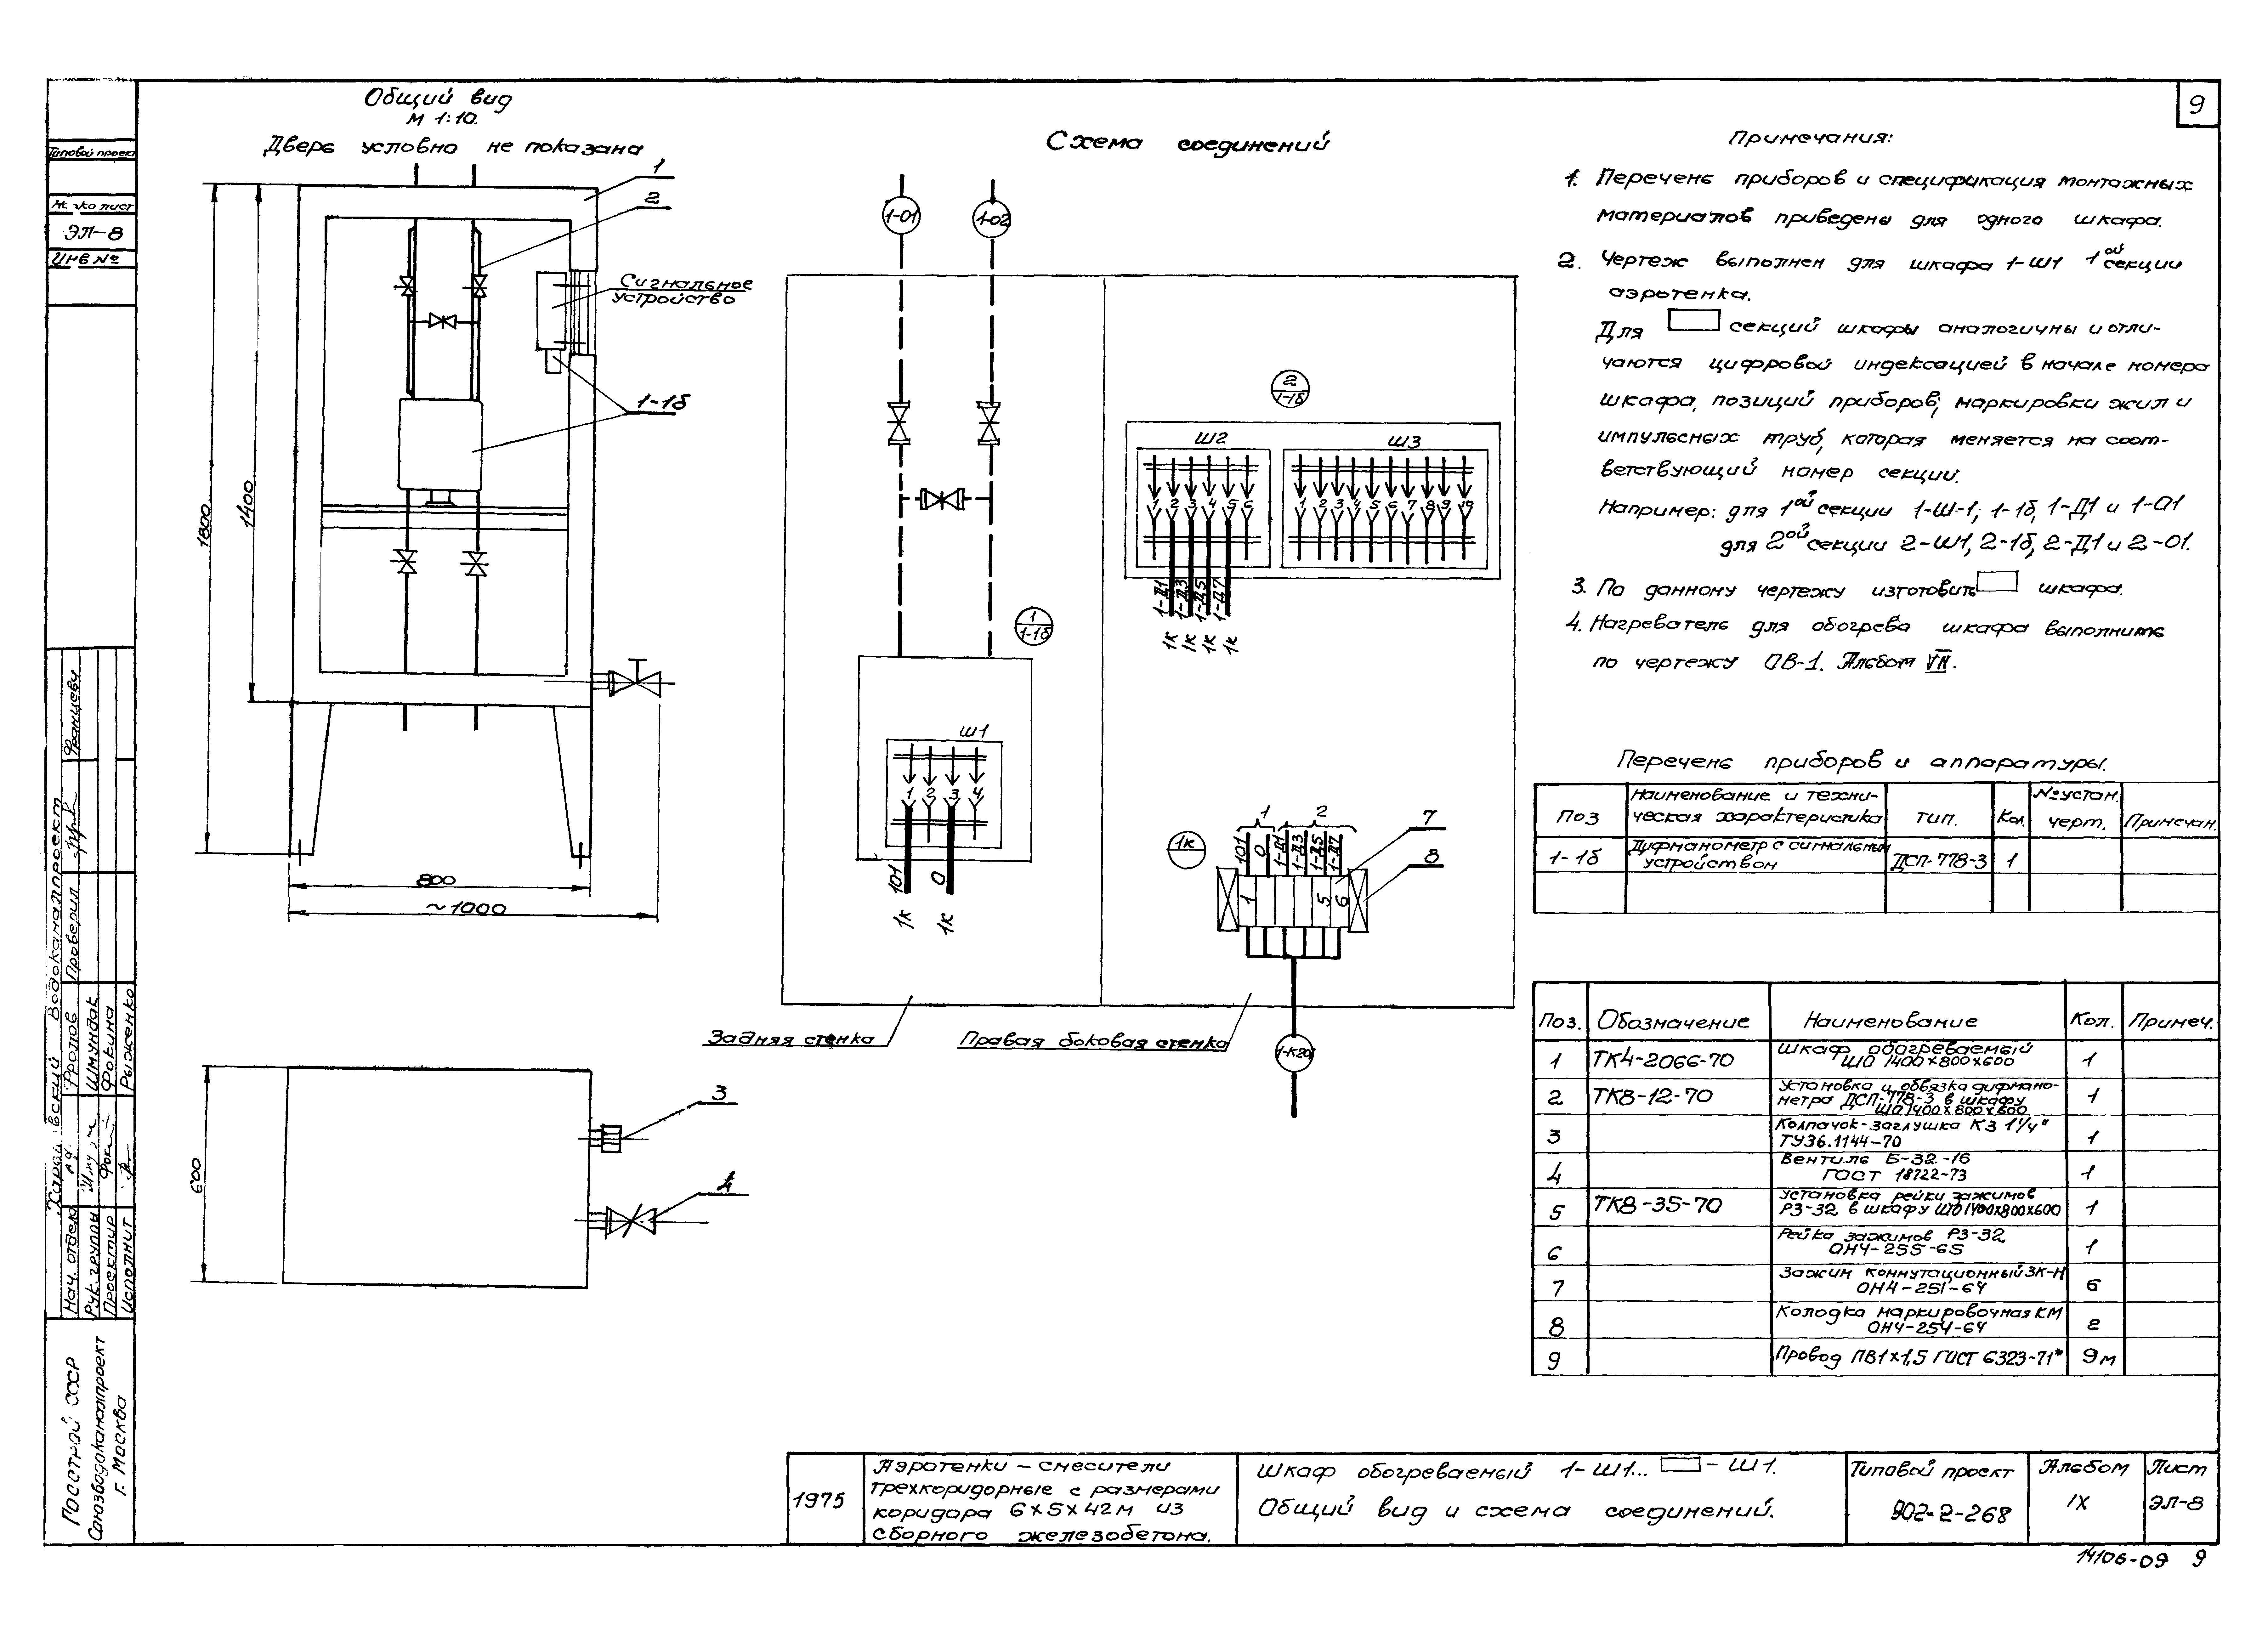 9
Общий вид
М 1:10.
Дверь условно не показана
1
2
Сигнальное
устройство
1-1б
1800
1400
800
~1000
600
3
4
Схема соединений
1-01
1-02
1
1-1б
Ш1
1 2 3 4
101
0
1К
1К
2
1-1б
Ш2
Ш3
1 2 3 4 5 6
1 2 3 4 5 6 7 8 9 10
1-Д1
1-Д3
1-Д5
1-Д7
1К
1К
1К
1К
1К
1
2
7
8
101
0
1-Д1
1-Д3
1-Д5
1-Д7
1
5
6
Задняя стенка
Правая боковая стенка
1-К20
Примечания:
1. Перечень приборов и спецификация монтажных
материалов приведены для одного шкафа.
2. Чертеж выполнен для шкафа 1-Ш1 1ой секции
аэротенка.
Для секций шкафы аналогичны и отли-
чаются цифровой индексацией в начале номера
шкафа, позиций приборов, маркировки жил и
импульсных труб, которая меняется на соот-
ветствующий номер секции.
Например: для 1ой секции 1-Ш-1; 1-1б, 1-Д1 и 1-01
для 2ой секции 2-Ш1, 2-1б, 2-Д1 и 2-01.
3. По данному чертежу изготовить шкафа.
4. Нагреватель для обогрева шкафа выполнить
по чертежу ОВ-1. Альбом VII.
Перечень приборов и аппаратуры.
Поз
Наименование и техни-
ческая характеристика
Тип.
Кол.
№ устан.
черт.
Примечан.
1-1б
Дифманометр с сигнальным
устройством
ДСП-778-3
1
Поз. Обозначение Наименование Кол. Примеч.
1 ТК4-2066-70 Шкаф обогреваемый
ШО 1400х800х600 1
2 ТК8-12-70 Установка и обвязка дифмано-
метра ДСП-778-3 в шкафу
ШО 1400х800х600 1
3 Колпачок-заглушка КЗ 1¼"
ТУ36.1144-70 1
4 Вентиль Б-32-16
ГОСТ 18722-73 1
5 ТК8-35-70 Установка рейки зажимов
РЗ-32 в шкафу ШО 1400х800х600 1
6 Рейка зажимов РЗ-32
ОН4-255-65 1
7 Зажим коммутационный ЗК-Н
ОН4-251-64 6
8 Колодка маркировочная КМ
ОН4-254-64 2
9 Провод ПВ1х1,5 ГОСТ 6323-71* 9м
1975
Аэротенки – смесители
трехкоридорные с размерами
коридора 6х5х42м из
сборного железобетона.
Шкаф обогреваемый 1-Ш1... -Ш1.
Общий вид и схема соединений.
Типовой проект
902-2-268
Альбом
IX
Лист
ЭЛ-8
14106-09 9
Типовой проект
лист
ЭЛ-8
Инв №
Водоканалпроект
Нач. отдела
Фролов
Рук. группы
Шмундак
Проектир
Фокина
Исполнит
Рыженко
Проверил
Госстрой СССР
Союзводоканалпроект
г. Москва